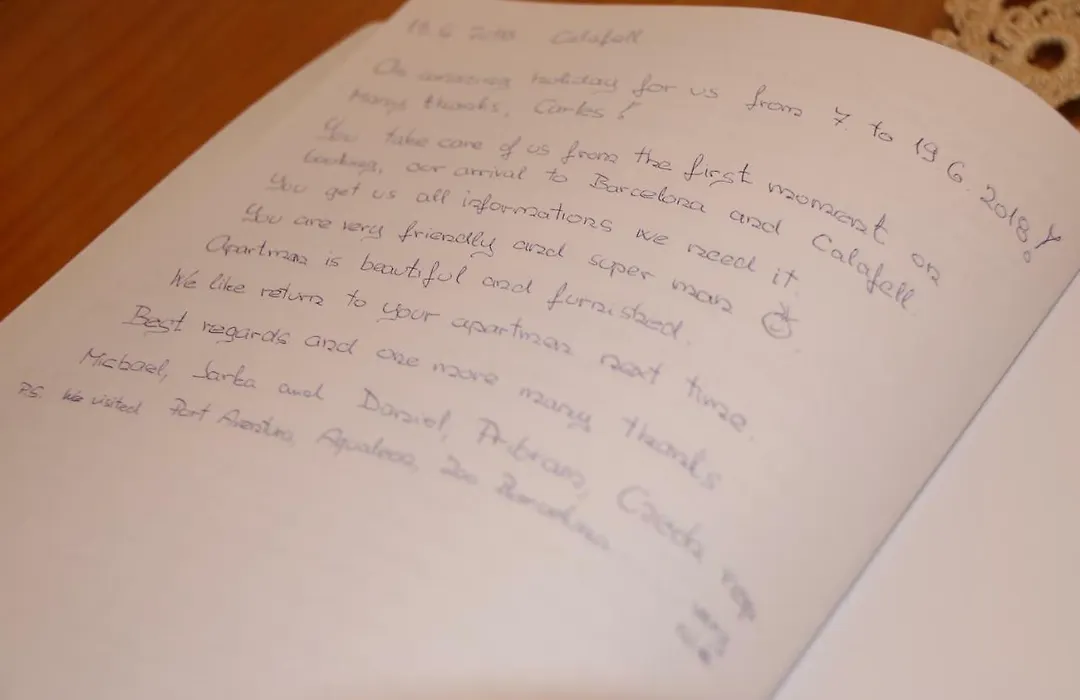 19.6 2018 Calafell
On amazing holiday for us from 7. to 19 6. 2018!
Many thanks, Carles!
You take care of us from the first moment on
booking, our arrival to Barcelona and Calafell.
You get us all informations we need it.
You are very friendly and super man ☺.
Apartman is beautiful and furnished.
We like return to your apartman next time.
Best regards and one more many thanks
Michael, Jarka and Daniel, Pribram, Czech rep
PS. We visited Port Aventura, Zoo Barcelona